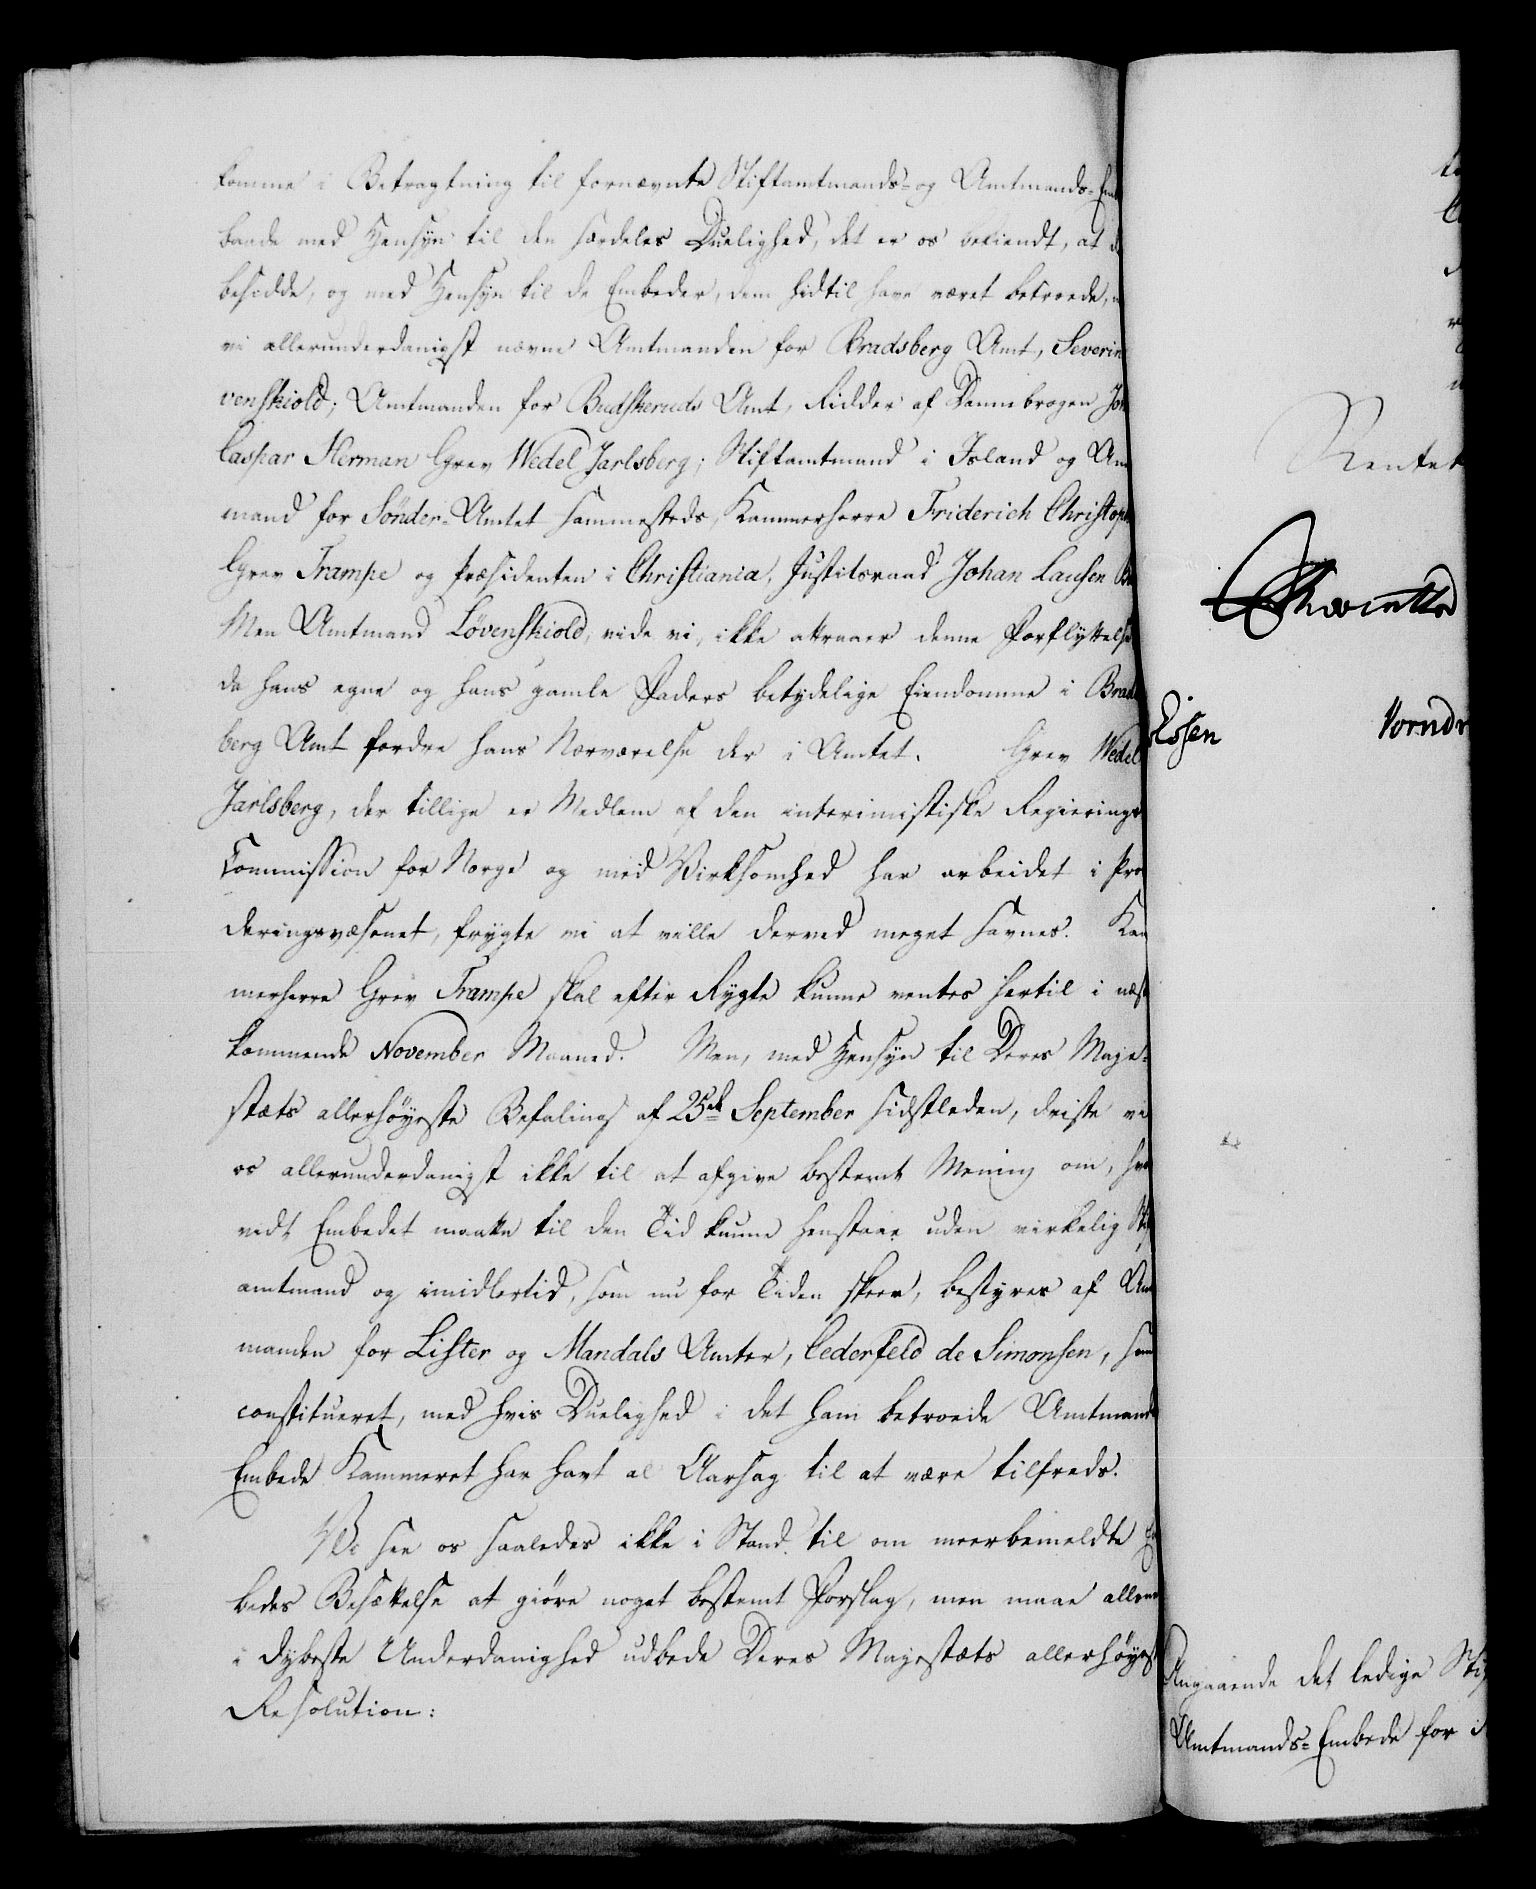 komme i Betragtning til fornævnte Stiftamtmands- og Amtmands-Em
baade med Hensyn til den særdeles Duelighed, det er os bekiendt, at d
besidde, og med Hensyn til de Embeder, dem hidtil have været betroede,
vi allerunderdanigst nævne Amtmanden for Bradsberg Amt, Severin
venskiold; Amtmanden for Budskeruds Amt, Ridder af Dannebrogen Joh
Caspar Herman Grev Wedel Jarlsberg; Stiftamtmand i Island og Am
mand for Sönder-Amtet sammesteds, Kammerherre Friderich Christoph
Grev Trampe og Præsidenten i Christiania, Justitsraad Johan Lausen
Men Amtmand Lövenskiold, vide vi, ikke attraaer denne Forflyttelse
da hans egne og hans gamle Faders betydelige Eiendomme i Brads
berg Amt fordre hans Nærværelse der i Amtet. Grev Wedel
Jarlsberg, der tillige er Medlem af den interimistiske Regierings
Commission for Norge og med Virksomhed har arbeidet i Pro
deringsvæsenet, frygte vi at ville derved meget savnes. Kam
merherre Grev Trampe skal efter Rygte kunne ventes hertil i næst
kommende November Maaned. Men, med Hensyn til Deres Maje-
stæts allerhöyeste Befaling af 25de September sidstleden, driste vi
os allerunderdanigst ikke til at afgive bestemt Mening om, hvor
vidt Embedet maatte til den Tid kunne henstaae uden virkelig Stift
amtmand og imidlertid, som nu for Tiden skeer, bestyres af Amt
manden for Lister og Mandals Amter, Cederfeld de Simonsen, som
constitueret, med hvis Duelighed i det ham betroede Amtmands
Embede Kammeret har havt al Aarsag til at være tilfreds.
Vi see os saaledes ikke i Stand til om meerbemeldte Em
bedes Besættelse at giöre noget bestemt Forslag, men maae allene
i dybeste Underdanighed udbede Deres Majestæts allerhöyest
Resolution:
Rentek
Essen Vorndr
Angaaende det ledige Stif
Amtmands-Embede for